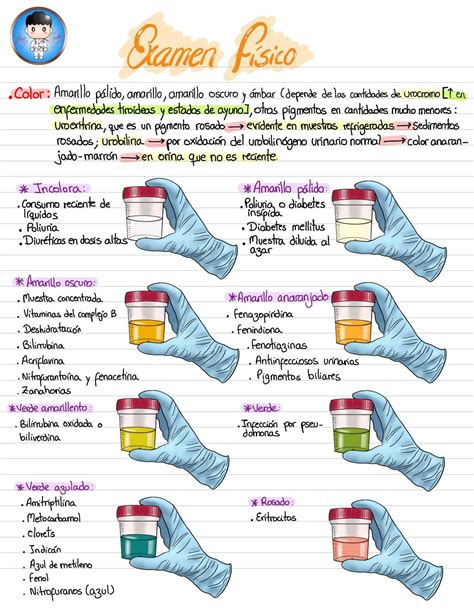 Examen físico
• Color: Amarillo pálido, amarillo, amarillo oscuro y ámbar (depende de las cantidades de urocromo [↑ en
enfermedades tiroideas y estados de ayuno], otros pigmentos en cantidades mucho menores:
uroeritrina, que es un pigmento rosado → evidente en muestras refrigeradas → sedimentos
rosados; urobilina → por oxidación del urobilinógeno urinario normal → color anaran-
jado-marrón → en orina que no es reciente.
* Incolora:
• Consumo reciente de
líquidos
• Poliuria
• Diuréticos en dosis altas
* Amarillo pálido:
• Poliuria o diabetes
insípida
• Diabetes mellitus
• Muestra diluida al
azar
* Amarillo oscuro:
• Muestra concentrada
• Vitaminas del complejo B
• Deshidratación
• Bilirrubina
• Acriflavina
• Nitrofurantoína y fenacetina
• Zanahorias
* Amarillo anaranjado:
• Fenazopiridina
• Fenindiona
• Fenotiazinas
• Antiinfecciosos urinarios
• Pigmentos biliares
* Verde amarillento:
• Bilirrubina oxidada o
biliverdina
* Verde:
• Infección por pseu-
domonas
* Verde azulado:
• Amitriptilina
• Metocarbamol
• Clorets
• Indicán
• Azul de metileno
• Fenol
• Nitrofuranos (azul)
* Rosado:
• Eritrocitos